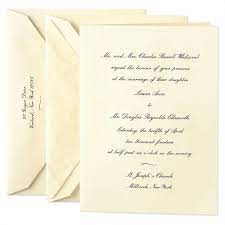 Mr. and Mrs. Charles Russell
request the honour of your presence
at the marriage of their daughter
Laura Ann
to
Mr. Douglas Reynolds Ellsworth
Saturday the twelfth of April
two thousand fourteen
at half past six o'clock in the evening
St. Joseph's Church
Millbrook, New York
Drive
New York